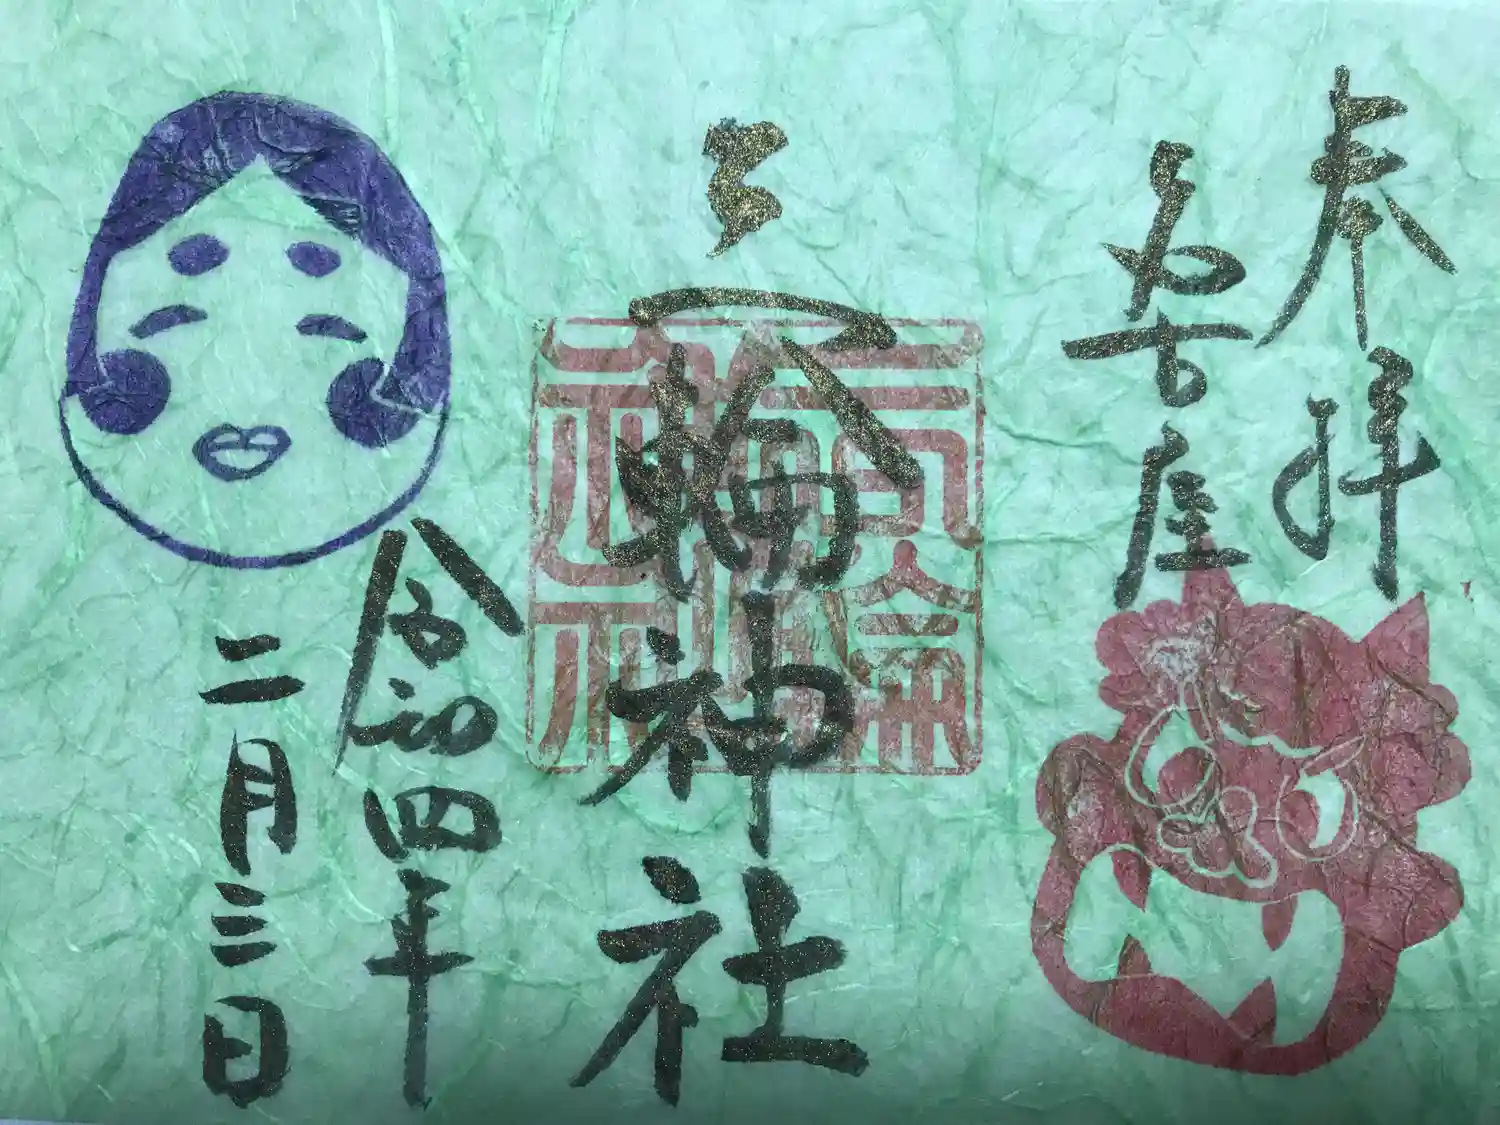 奉拝
名古屋
三輪神社
令和四年
二月三日